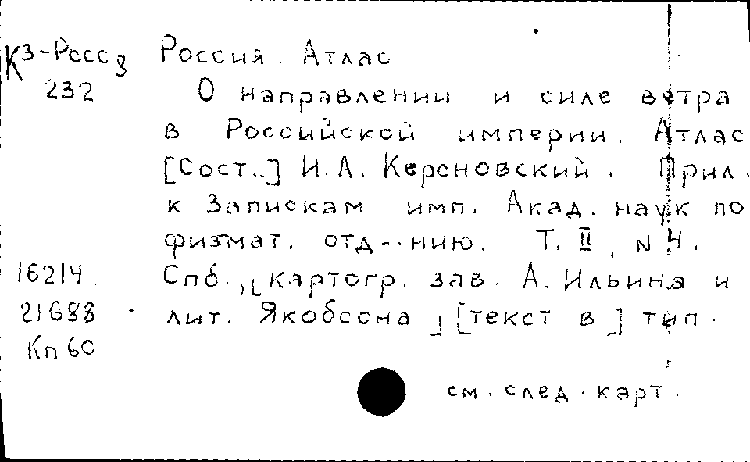 К3-Росс 8 Россия. Атлас
232 О направлении и силе ветра
в Российской империи. Атлас
[Сост.] И.А. Керсновский. Прил.
к Запискам имп. Акад. наук по
физмат. отд-нию. Т. II, N 4.
16214. Спб., [картогр. зав. А. Ильина и
21688 лит. Якобсона], [текст в] тип.
Кп 60
см. след. карт.